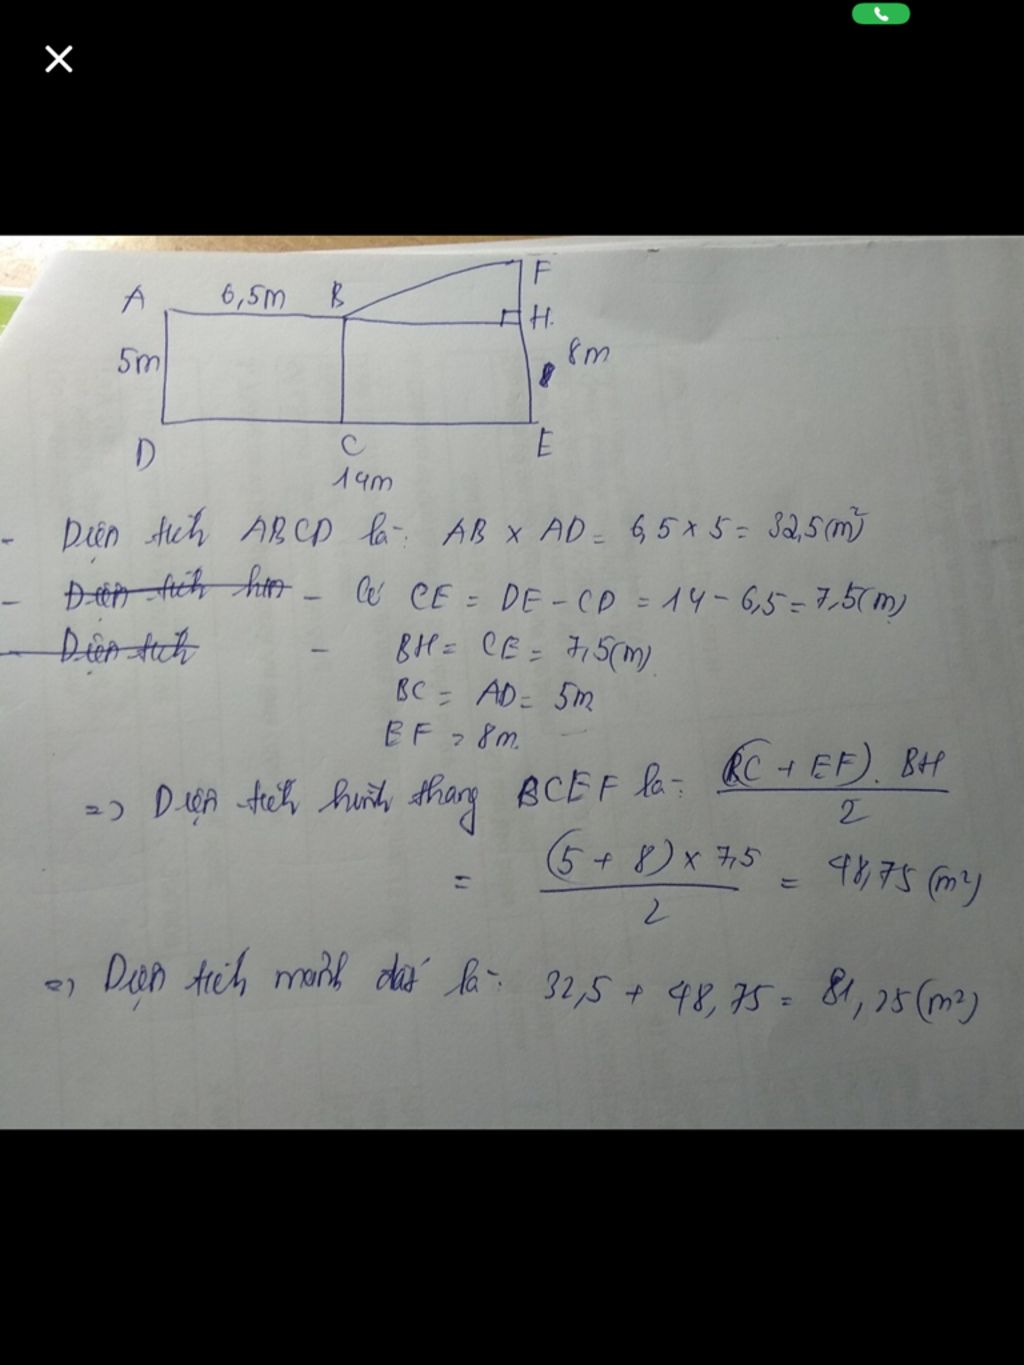 A 6,5m B F
H.
5m 8m
D C E
14m
- Diện tích ABCD là: AB x AD = 6,5 x 5 = 32,5 (m²)
- Diện tích hìn - Có CE = DE - CD = 14 - 6,5 = 7,5(m)
- Diện tích - BH = CE = 7,5(m)
BC = AD = 5m
EF = 8m.
=> Diện tích hình thang BCEF là: (BC + EF). BH / 2
= (5 + 8) x 7,5 / 2 = 48,75 (m²)
=> Diện tích mảnh đất là: 32,5 + 48,75 = 81,25 (m²)